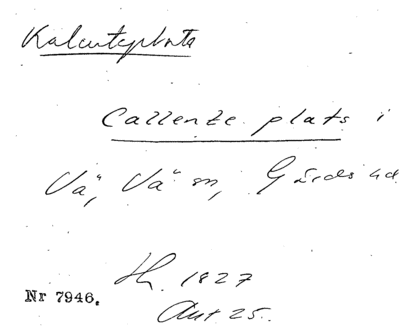 Kalenteplats
Callente plats i
Vä, Vä sn, Gärds hd
Hfl. 1827
Nr 7946.
Akt 25.